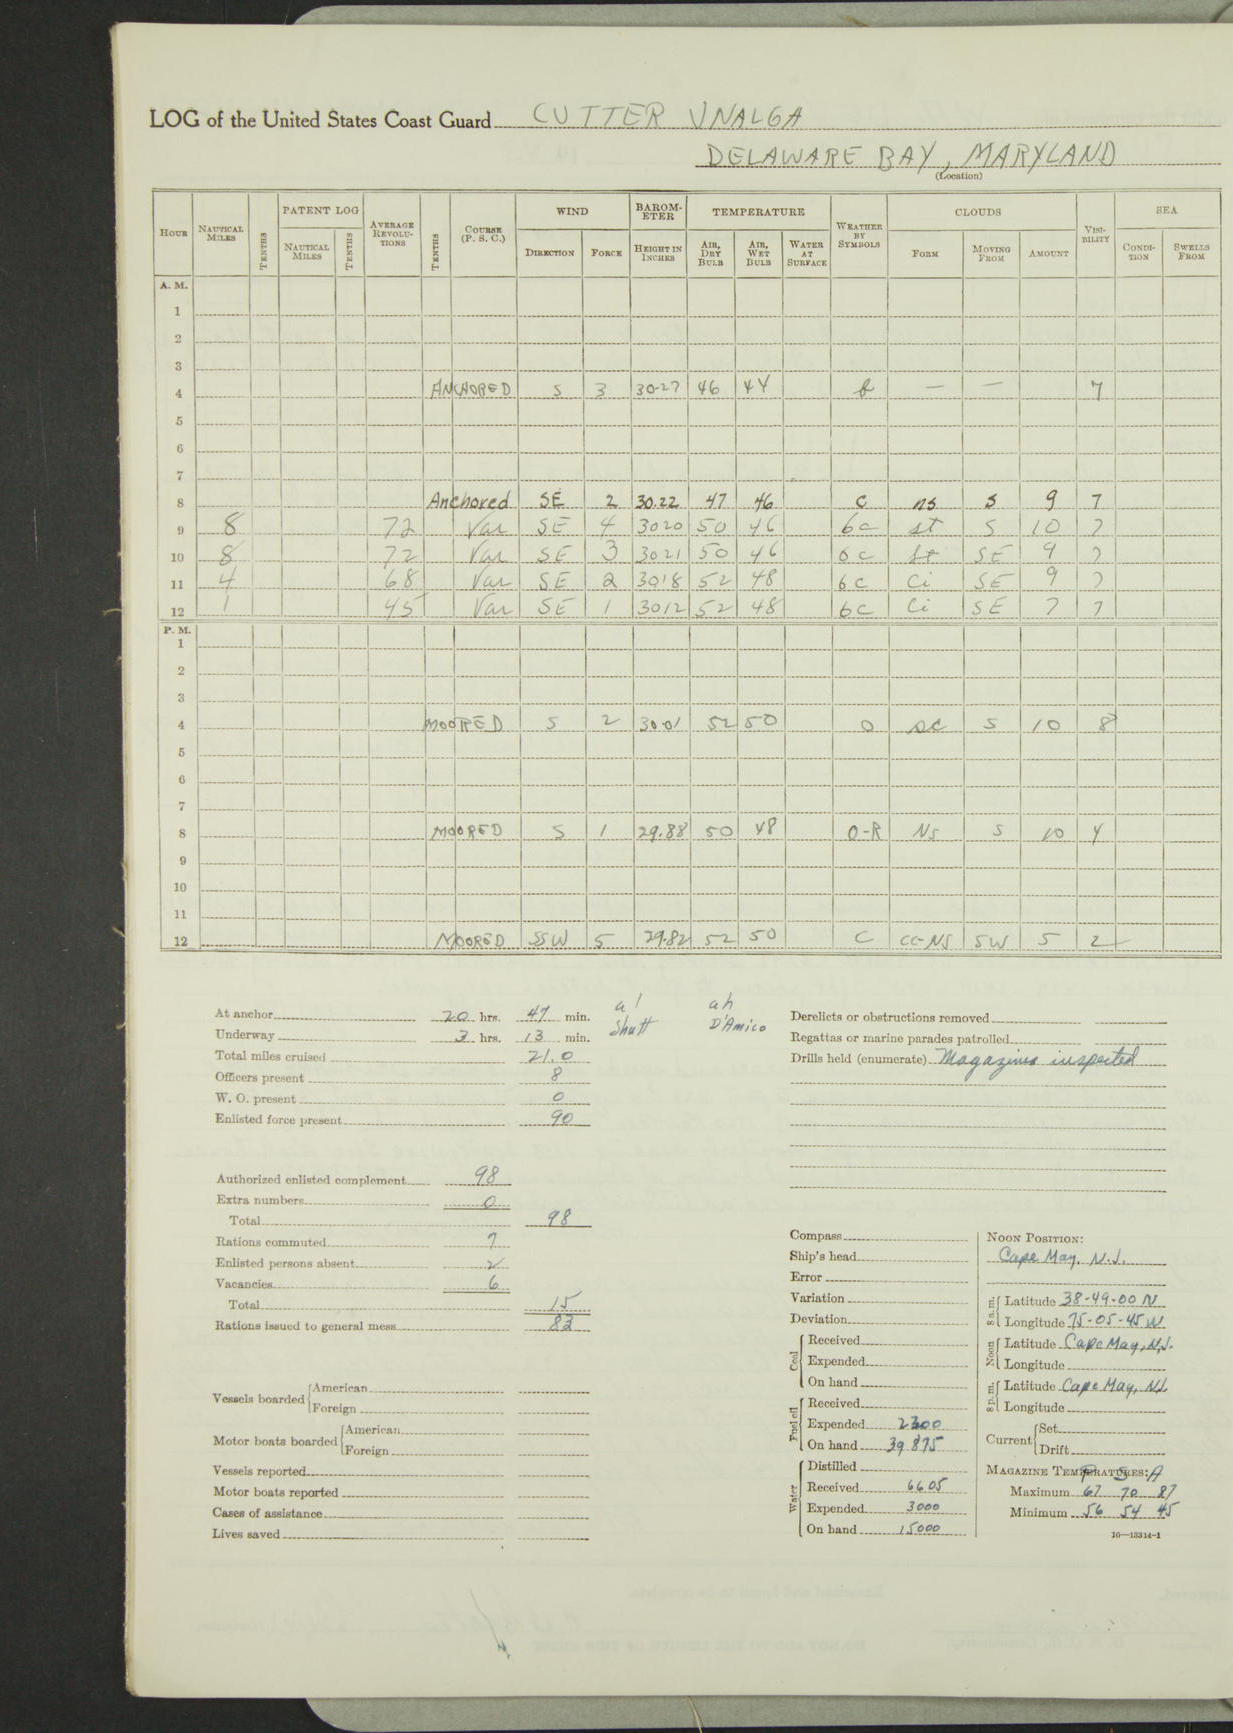 LOG of the United States Coast Guard CUTTER UNALGA
DELAWARE BAY, MARYLAND
(Location)
HOUR NAUTICAL MILES TENTHS PATENT LOG NAUTICAL MILES TENTHS AVERAGE REVOLU-TIONS TENTHS COURSE (P. S. C.) WIND DIRECTION FORCE BAROM-ETER HEIGHT IN INCHES TEMPERATURE AIR, DRY BULB AIR, WET BULB WATER AT SURFACE WEATHER BY SYMBOLS CLOUDS FORM MOVING FROM AMOUNT VISI-BILITY SEA CONDI-TION SWELLS FROM
A. M.
1
2
3
4 ANCHORED S 3 30-27 46 44 b — — 7
5
6
7
8 Anchored SE 2 30.22 47 46 C ns S 9 7
9 8 72 Var SE 4 3020 50 46 6c st S 10 7
10 8 72 Var SE 3 3021 50 46 6c st SE 9 7
11 4 68 Var SE 2 3018 52 48 6c Ci SE 9 7
12 1 45 Var SE 1 3012 52 48 6c Ci SE 7 7
P. M.
1
2
3
4 MOORED S 2 30.01 52 50 O SC S 10 8
5
6
7
8 MOORED S 1 29.88 50 48 O-R NS S 10 4
9
10
11
12 MOORED SSW 5 29.82 52 50 C CC-NS SW 5 2
At anchor 20 hrs. 47 min.
Underway 3 hrs. 13 min.
Total miles cruised 21.0
Officers present 8
W. O. present 0
Enlisted force present 90
al ah
Shutt D'Amico
Authorized enlisted complement 98
Extra numbers 0
Total 98
Rations commuted 7
Enlisted persons absent 2
Vacancies 6
Total 15
Rations issued to general mess 83
Vessels boarded American
Foreign
Motor boats boarded American
Foreign
Vessels reported
Motor boats reported
Cases of assistance
Lives saved
Derelicts or obstructions removed
Regattas or marine parades patrolled
Drills held (enumerate) Magazines inspected
Compass
Ship's head
Error
Variation
Deviation
Coal Received
Expended
On hand
Fuel oil Received
Expended 2300
On hand 39 875
Water Distilled
Received 6605
Expended 3000
On hand 15000
NOON POSITION:
Cape May, N.J.
8 a.m. Latitude 38-49-00 N
Longitude 75-05-45 W
Noon Latitude Cape May, N.J.
Longitude
8 p.m. Latitude Cape May, N.J.
Longitude
Current Set
Drift
MAGAZINE TEMPERATURES: P S A
Maximum 67 70 87
Minimum 56 54 45
16—13314-1